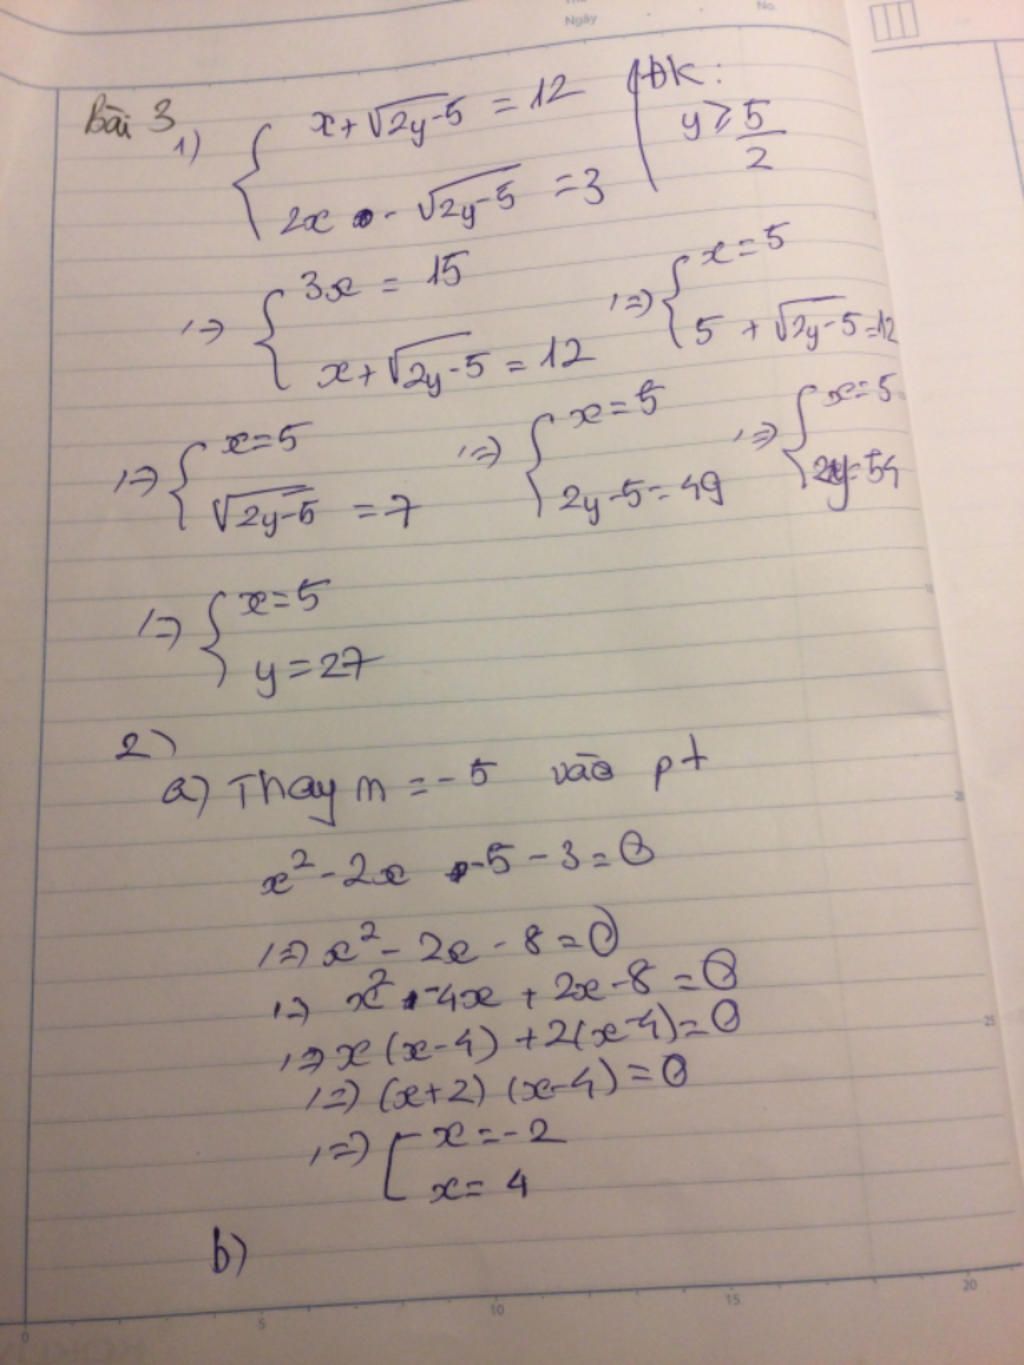 Ngày
No.
Bài 3
1) { x + √2y-5 = 12 | ĐK:
2x - √2y-5 = 3 | y ≥ 5/2
<=> { 3x = 15 <=> { x = 5
x + √2y-5 = 12 5 + √2y-5 = 12
<=> { x = 5 <=> { x = 5 <=> { x = 5
√2y-5 = 7 2y-5 = 49 2y = 54
<=> { x = 5
y = 27
2)
a) Thay m = -5 vào pt
x² - 2x -5 - 3 = 0
<=> x² - 2x - 8 = 0
<=> x² - 4x + 2x - 8 = 0
<=> x(x-4) + 2(x-4) = 0
<=> (x+2) (x-4) = 0
<=> [ x = -2
x = 4
b)
0 5 10 15 20
25